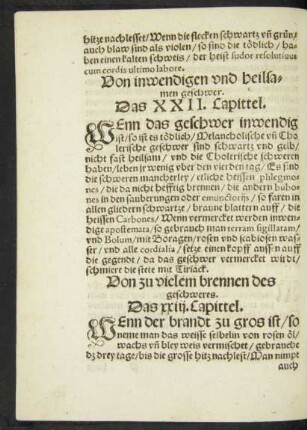 hitze nachlesset/Wenn die flecken schwartz vñ grün/
auch blaw sind als violen/so sind die tödlich/ha-
ben einen kalten schweis/der heist sudor resolutiuus
cum cordis ultimo labore.
Von inwendigen vnd heilsa-
men geschwer.
Das XXII. Capittel.
WEnn das geschwer inwendig
ist/so ist es tödlich/Melancholische vñ Cho
lerische geschwer sind schwartz vnd gelb/
nicht fast heilsam/vnd die Cholerische schweren
haben/leben je wenig vber den vierden tag/Es sind
die schweren mancherley/etliche heissen phlegmo
nes/die da nicht hefftig brennen/die andern bubo
nes in den sauberungen oder emunctorijs/so faren in
allen gliedern schwartze/braune blattern auff/die
heissen Carbones/Wenn vermercket werden inwen-
digt apostemata/so gebrauch man terram sigillatam/
vnd Bolum/mit Boragen/rosen vnd scabiosen was-
ser/vnd alle cordialia/setze einen kopff aussen auff
die gegendt/da das geschwer vermercket wirdt/
schmiere die stete mit Tiriack.
Von zu vielem brennen des
geschweres.
Das xxiij. Capittel.
WEnn der brandt zu gros ist/so
neme man das weisse selblein von rosen öl/
wachs vñ bley weis vermischet/gebrauche
dz drey tage/bis die grosse hitz nachlest/Man nimpt
auch